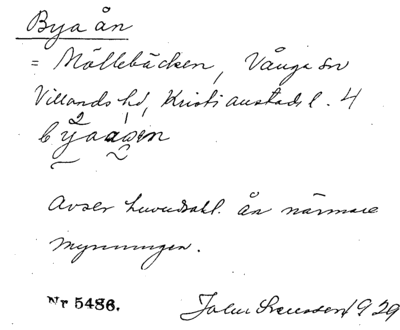 Bya ån
= Möllebäcken, Vånga sn
Villands hd, Kristianstads l. 4
byaåsen
Avser huvudsakl. ån närmare
mynningen.
Nr 5486. John Svensson 1929